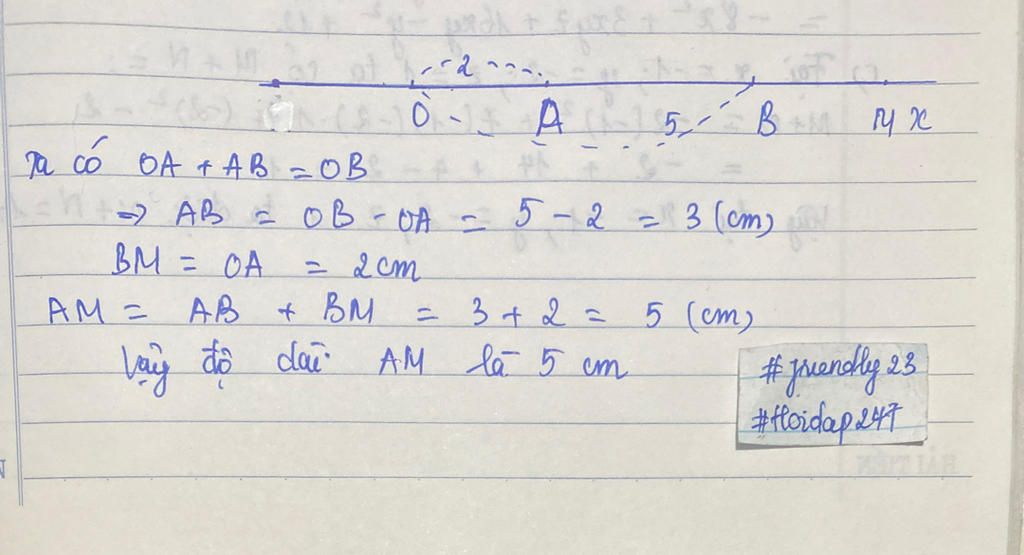 2
O A 5 B M x
Ta có OA + AB = OB
=> AB = OB - OA = 5 - 2 = 3 (cm)
BM = OA = 2cm
AM = AB + BM = 3 + 2 = 5 (cm)
Vậy độ dài AM là 5 cm
#friendly23
#Hoidap247